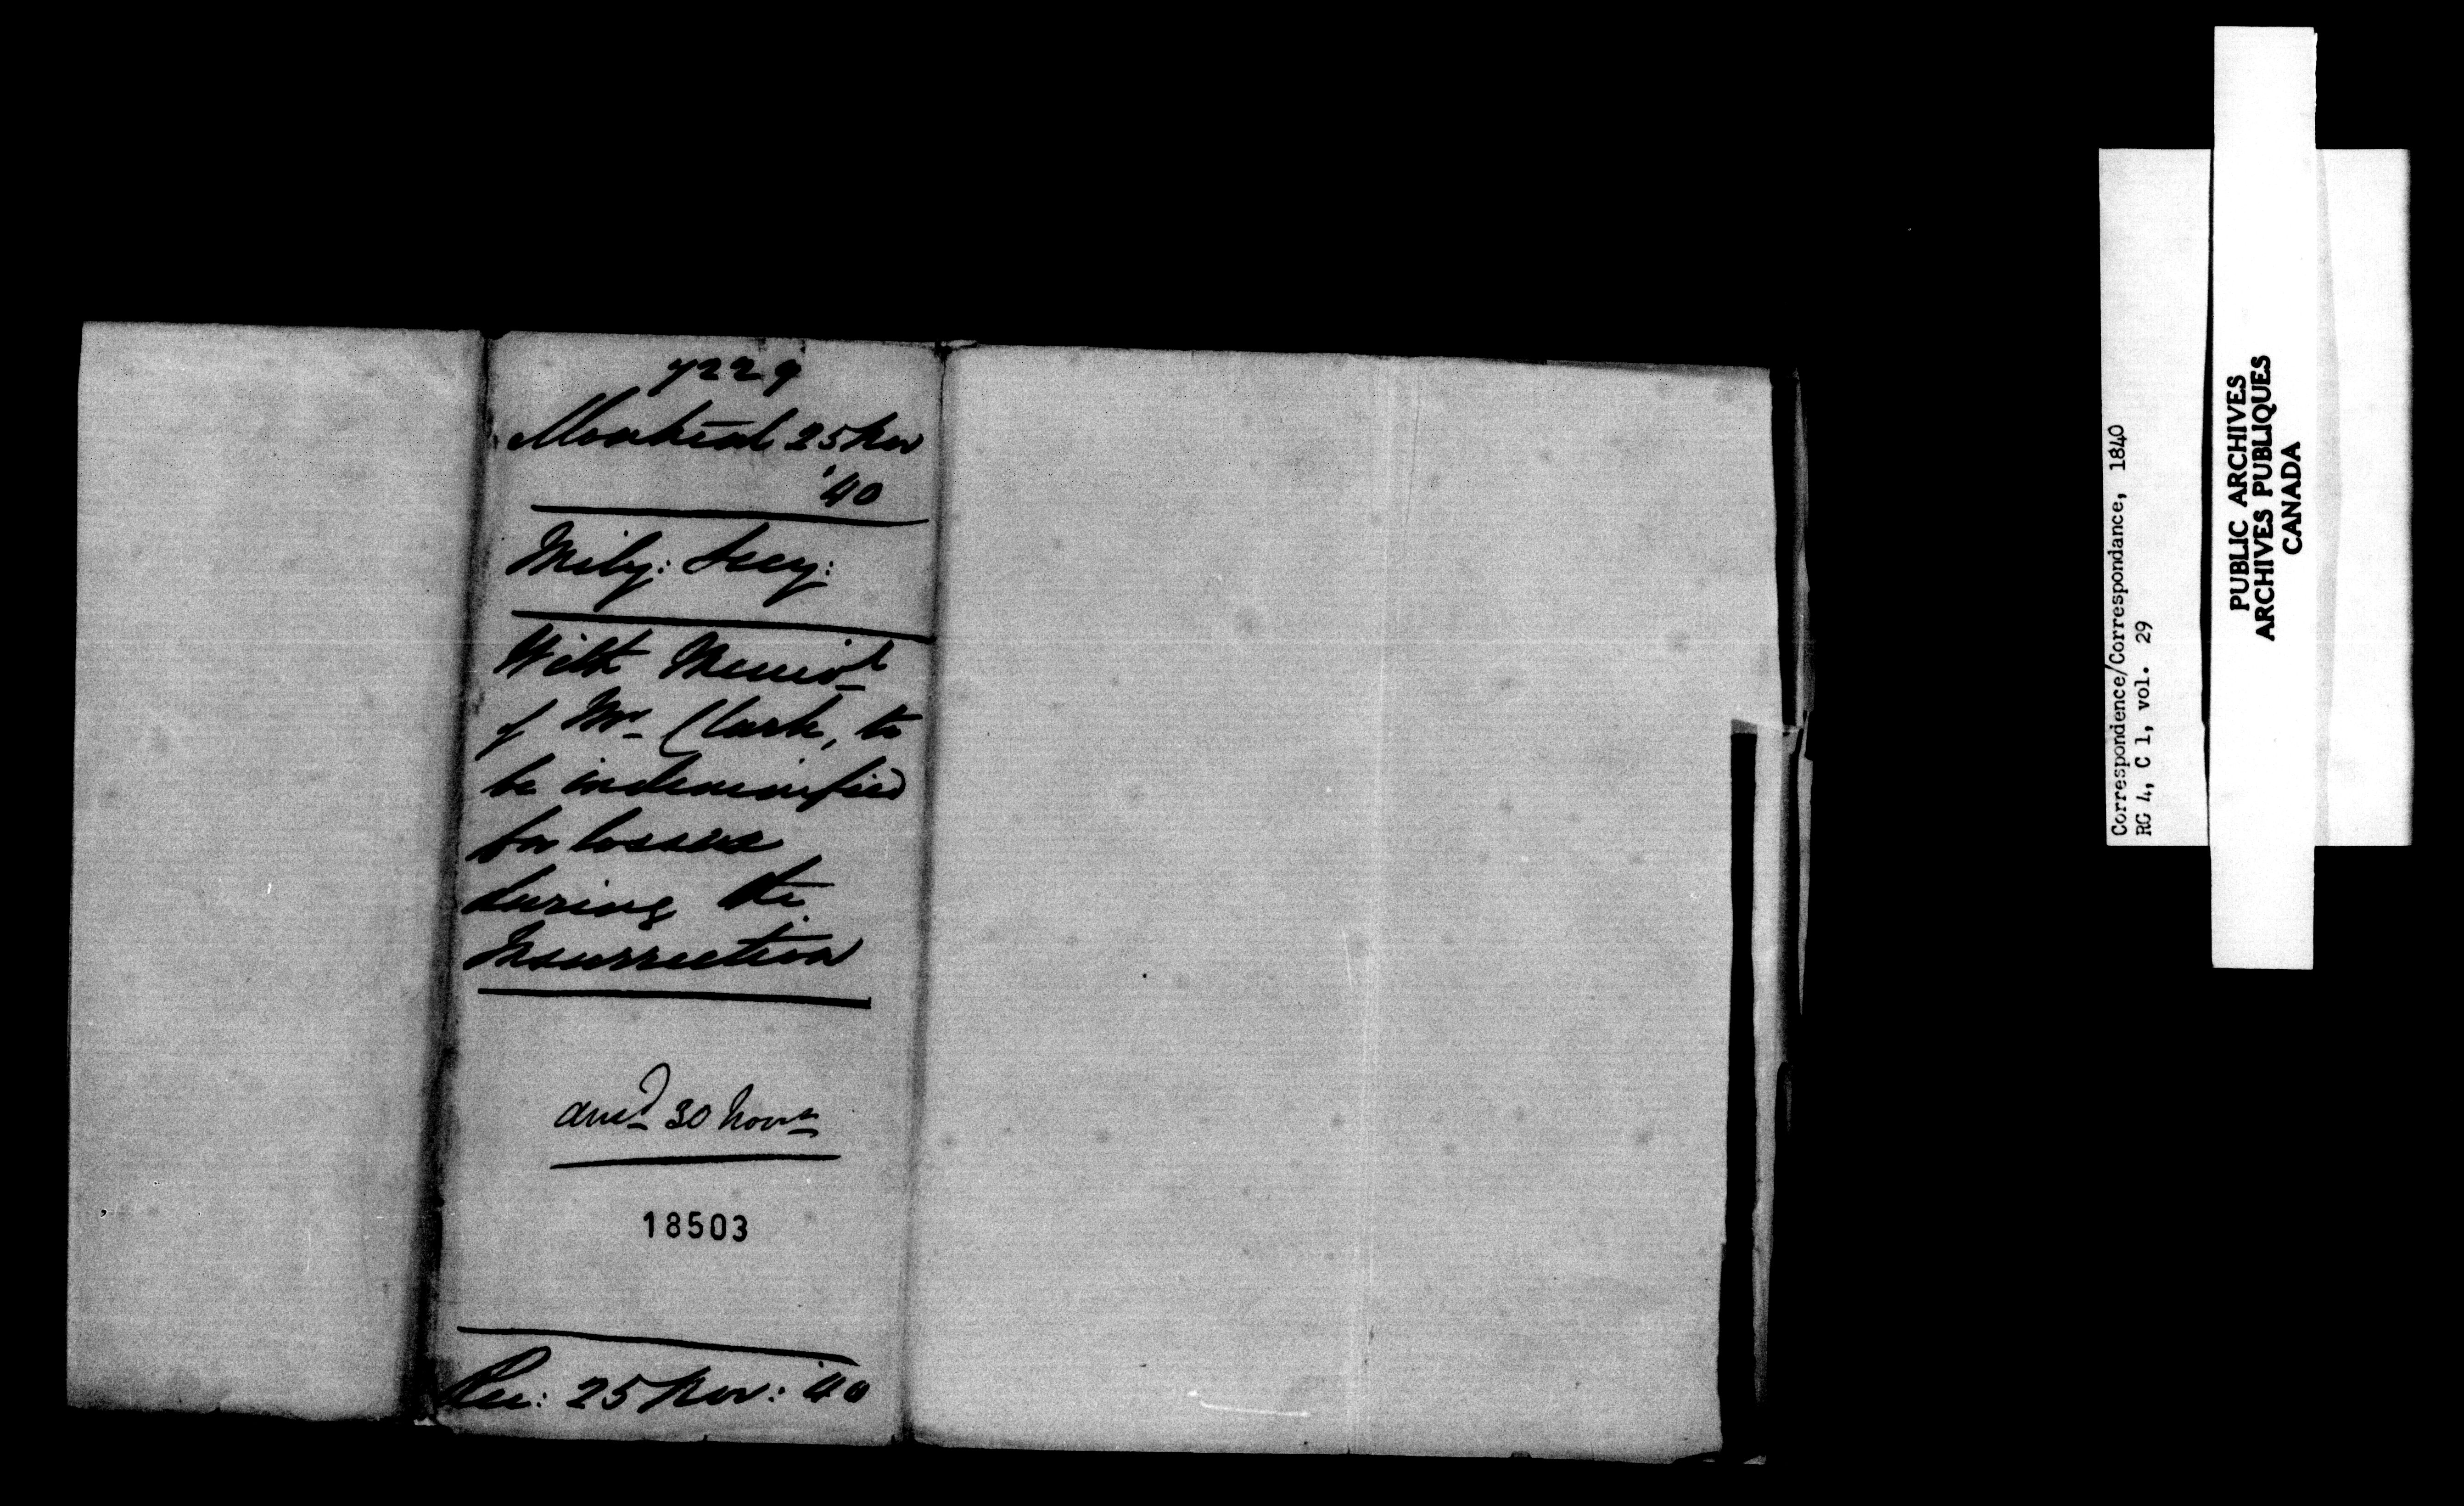 7229
Montreal 25 Nov
'40
Mily: Secy:
With Memol
of Mr Clark, to
be indemnified
for losses
during the
Insurrection
ansd 30 Novr
18503
Rec: 25 Nov: '40
Correspondence/Correspondance, 1840
RG 4, C 1, vol. 29
PUBLIC ARCHIVES
ARCHIVES PUBLIQUES
CANADA